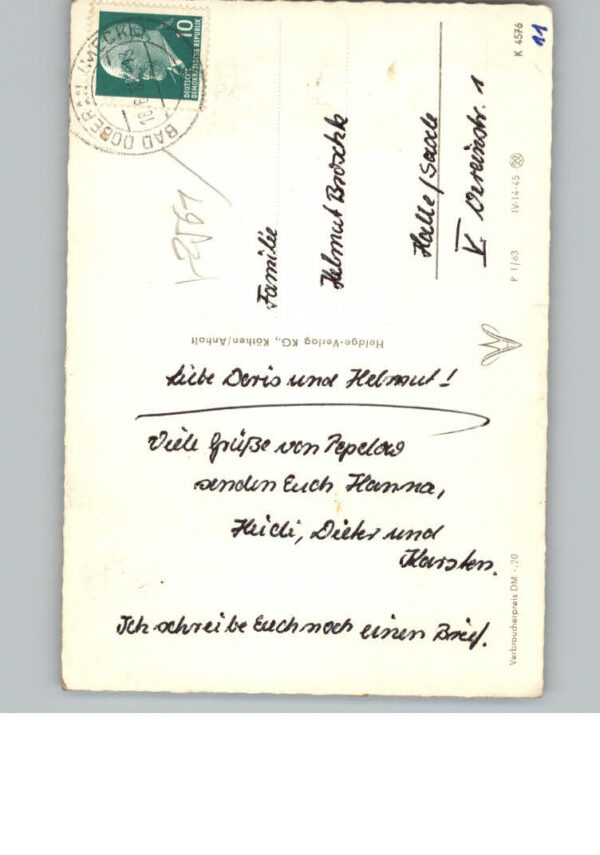 Liebe Doris und Helmut!
Viele Grüße von Pepelow
senden Euch Hanna,
Heidi, Dieter und
Karsten.
Ich schreibe Euch noch einen Brief.
Familie
Helmut
Halle/Saale
V. Vereinstr. 1
Heldge-Verlag KG., Köthen/Anhalt
BAD DOBERAN (MECKL)
10
DEUTSCHE
DEMOKRATISCHE REPUBLIK
K 4576
11
P 1/63 IV-14-45
Verbraucherpreis DM -.20